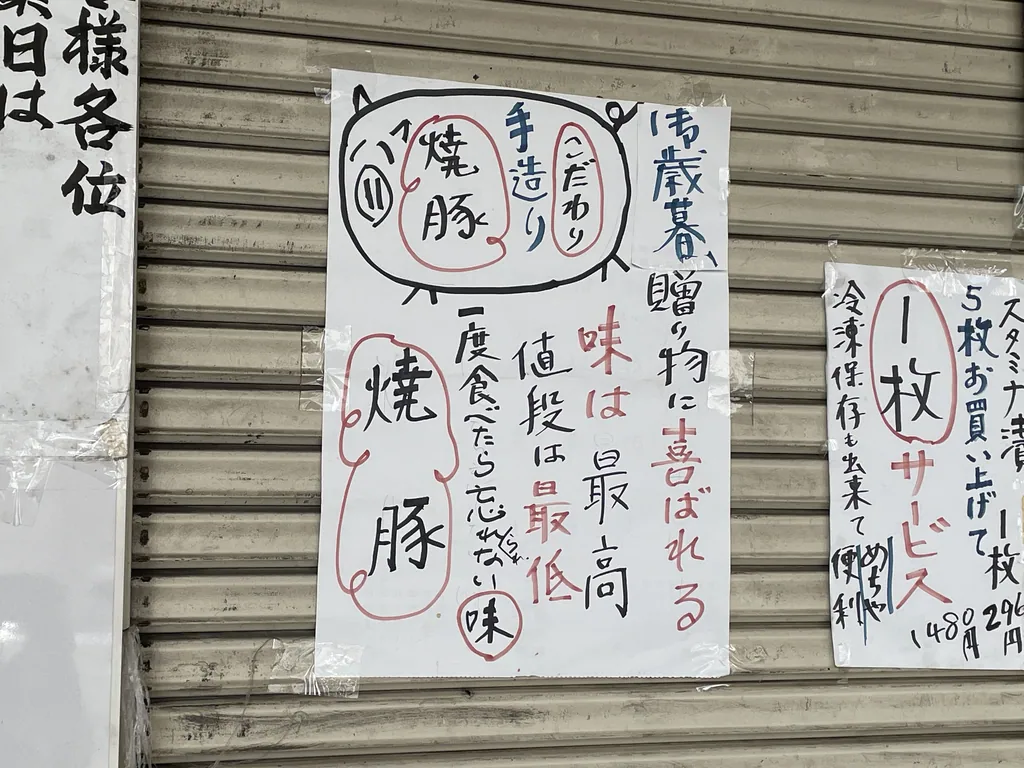 スタミナ漬 1枚 296円
5枚お買い上げて 1480円
1枚サービス
冷凍保存も出来て めちゃ便利
御歳暮、贈り物に喜ばれる
こだわり
手造り
焼豚
味は最高
値段は最低
一度食べたら忘れられない味
焼豚
様各位
日は